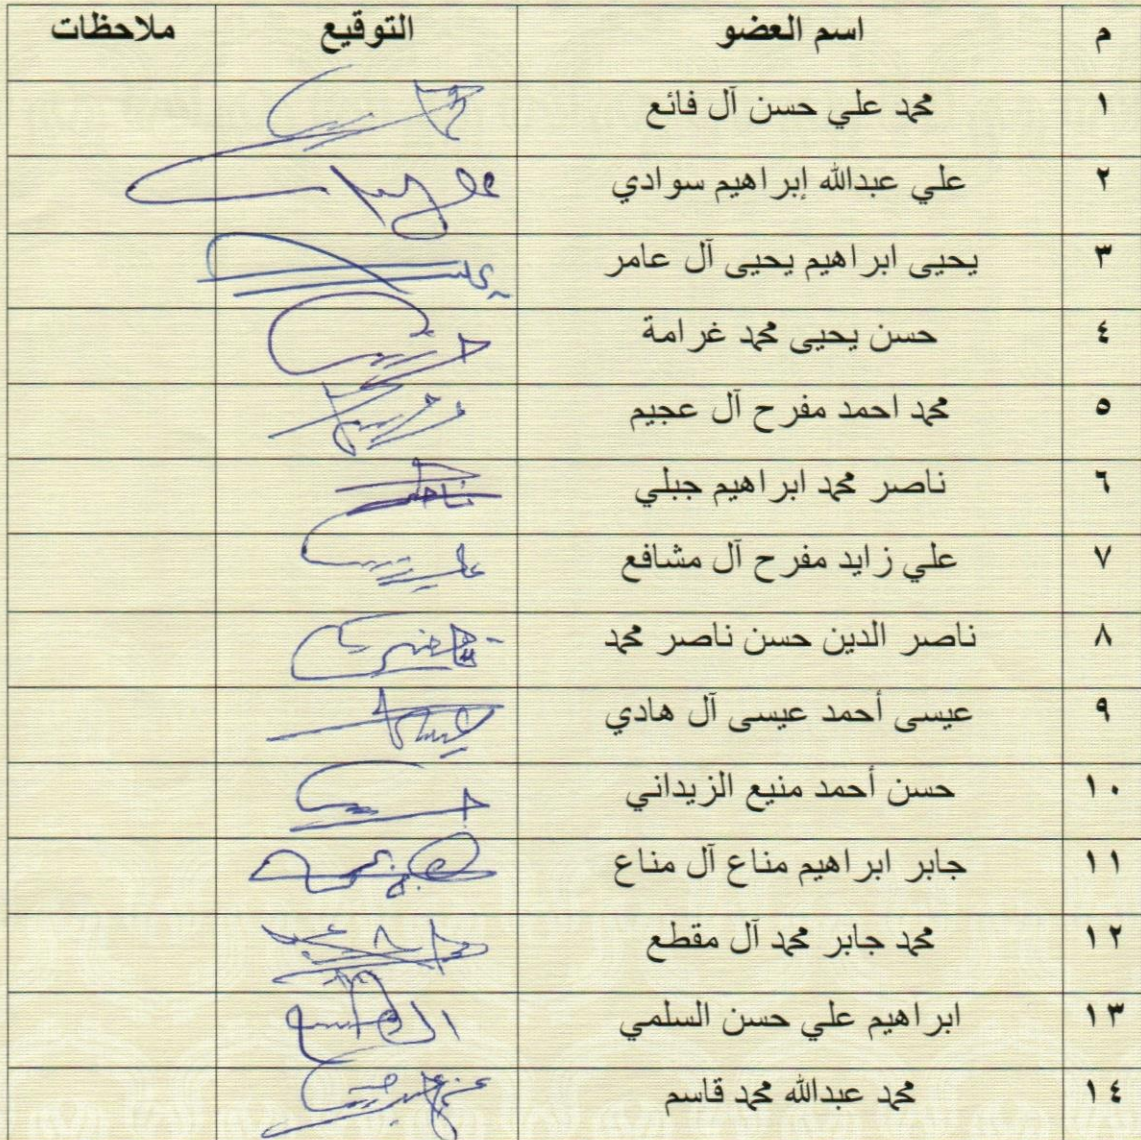 م اسم العضو التوقيع ملاحظات
١ محمد علي حسن آل فائع
٢ علي عبدالله إبراهيم سوادي
٣ يحيى ابراهيم يحيى آل عامر
٤ حسن يحيى محمد غرامة
٥ محمد احمد مفرح آل عجيم
٦ ناصر محمد ابراهيم جبلي
٧ علي زايد مفرح آل مشافع
٨ ناصر الدين حسن ناصر محمد
٩ عيسى أحمد عيسى آل هادي
١٠ حسن أحمد منيع الزيداني
١١ جابر ابراهيم مناع آل مناع
١٢ محمد جابر محمد آل مقطع
١٣ ابراهيم علي حسن السلمي
١٤ محمد عبدالله محمد قاسم